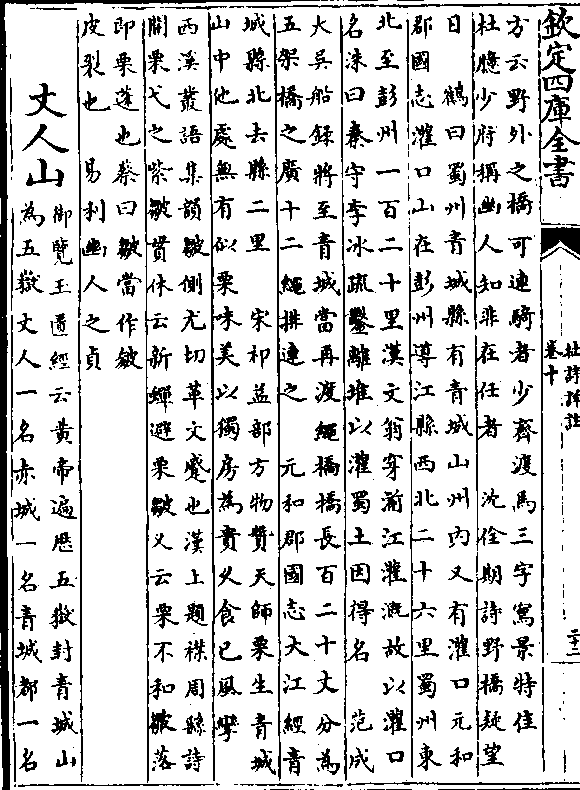 欽定四庫全書
杜詩詳註
卷十
方云野外之橋可連騎者少齊渡馬三字寫景特佳
杜臆少府稱幽人知非在任者 沈佺期詩野橋疑望
日 鶴曰蜀州青城縣有青城山州內又有灌口元和
郡國志灌口山在彭州導江縣西北二十六里蜀州東
北至彭州一百二十里漢文翁穿湔江灌溉故以灌口
名洙曰秦守李冰疏鑿離堆以灌蜀土因得名 范成
大吳船錄將至青城當再渡繩橋橋長百二十丈分為
五架橋之廣十二繩排連之 元和郡國志大江經青
城縣北去縣二里 宋祁益部方物贊天師栗生青城
山中他處無有似栗味美以獨房為貴久食已風攣
西溪叢語集韻皺側尤切革文蹙也漢上題襟周繇詩
開栗弋之紫皺貫休云新蟬避栗皺又云栗不和皺落
即栗蓬也蔡曰皺當作皴
皮裂也 易利幽人之貞
丈人山 御覽玉匱經云黃帝遍歷五嶽封青城山
為五嶽丈人一名赤城一名青城都一名